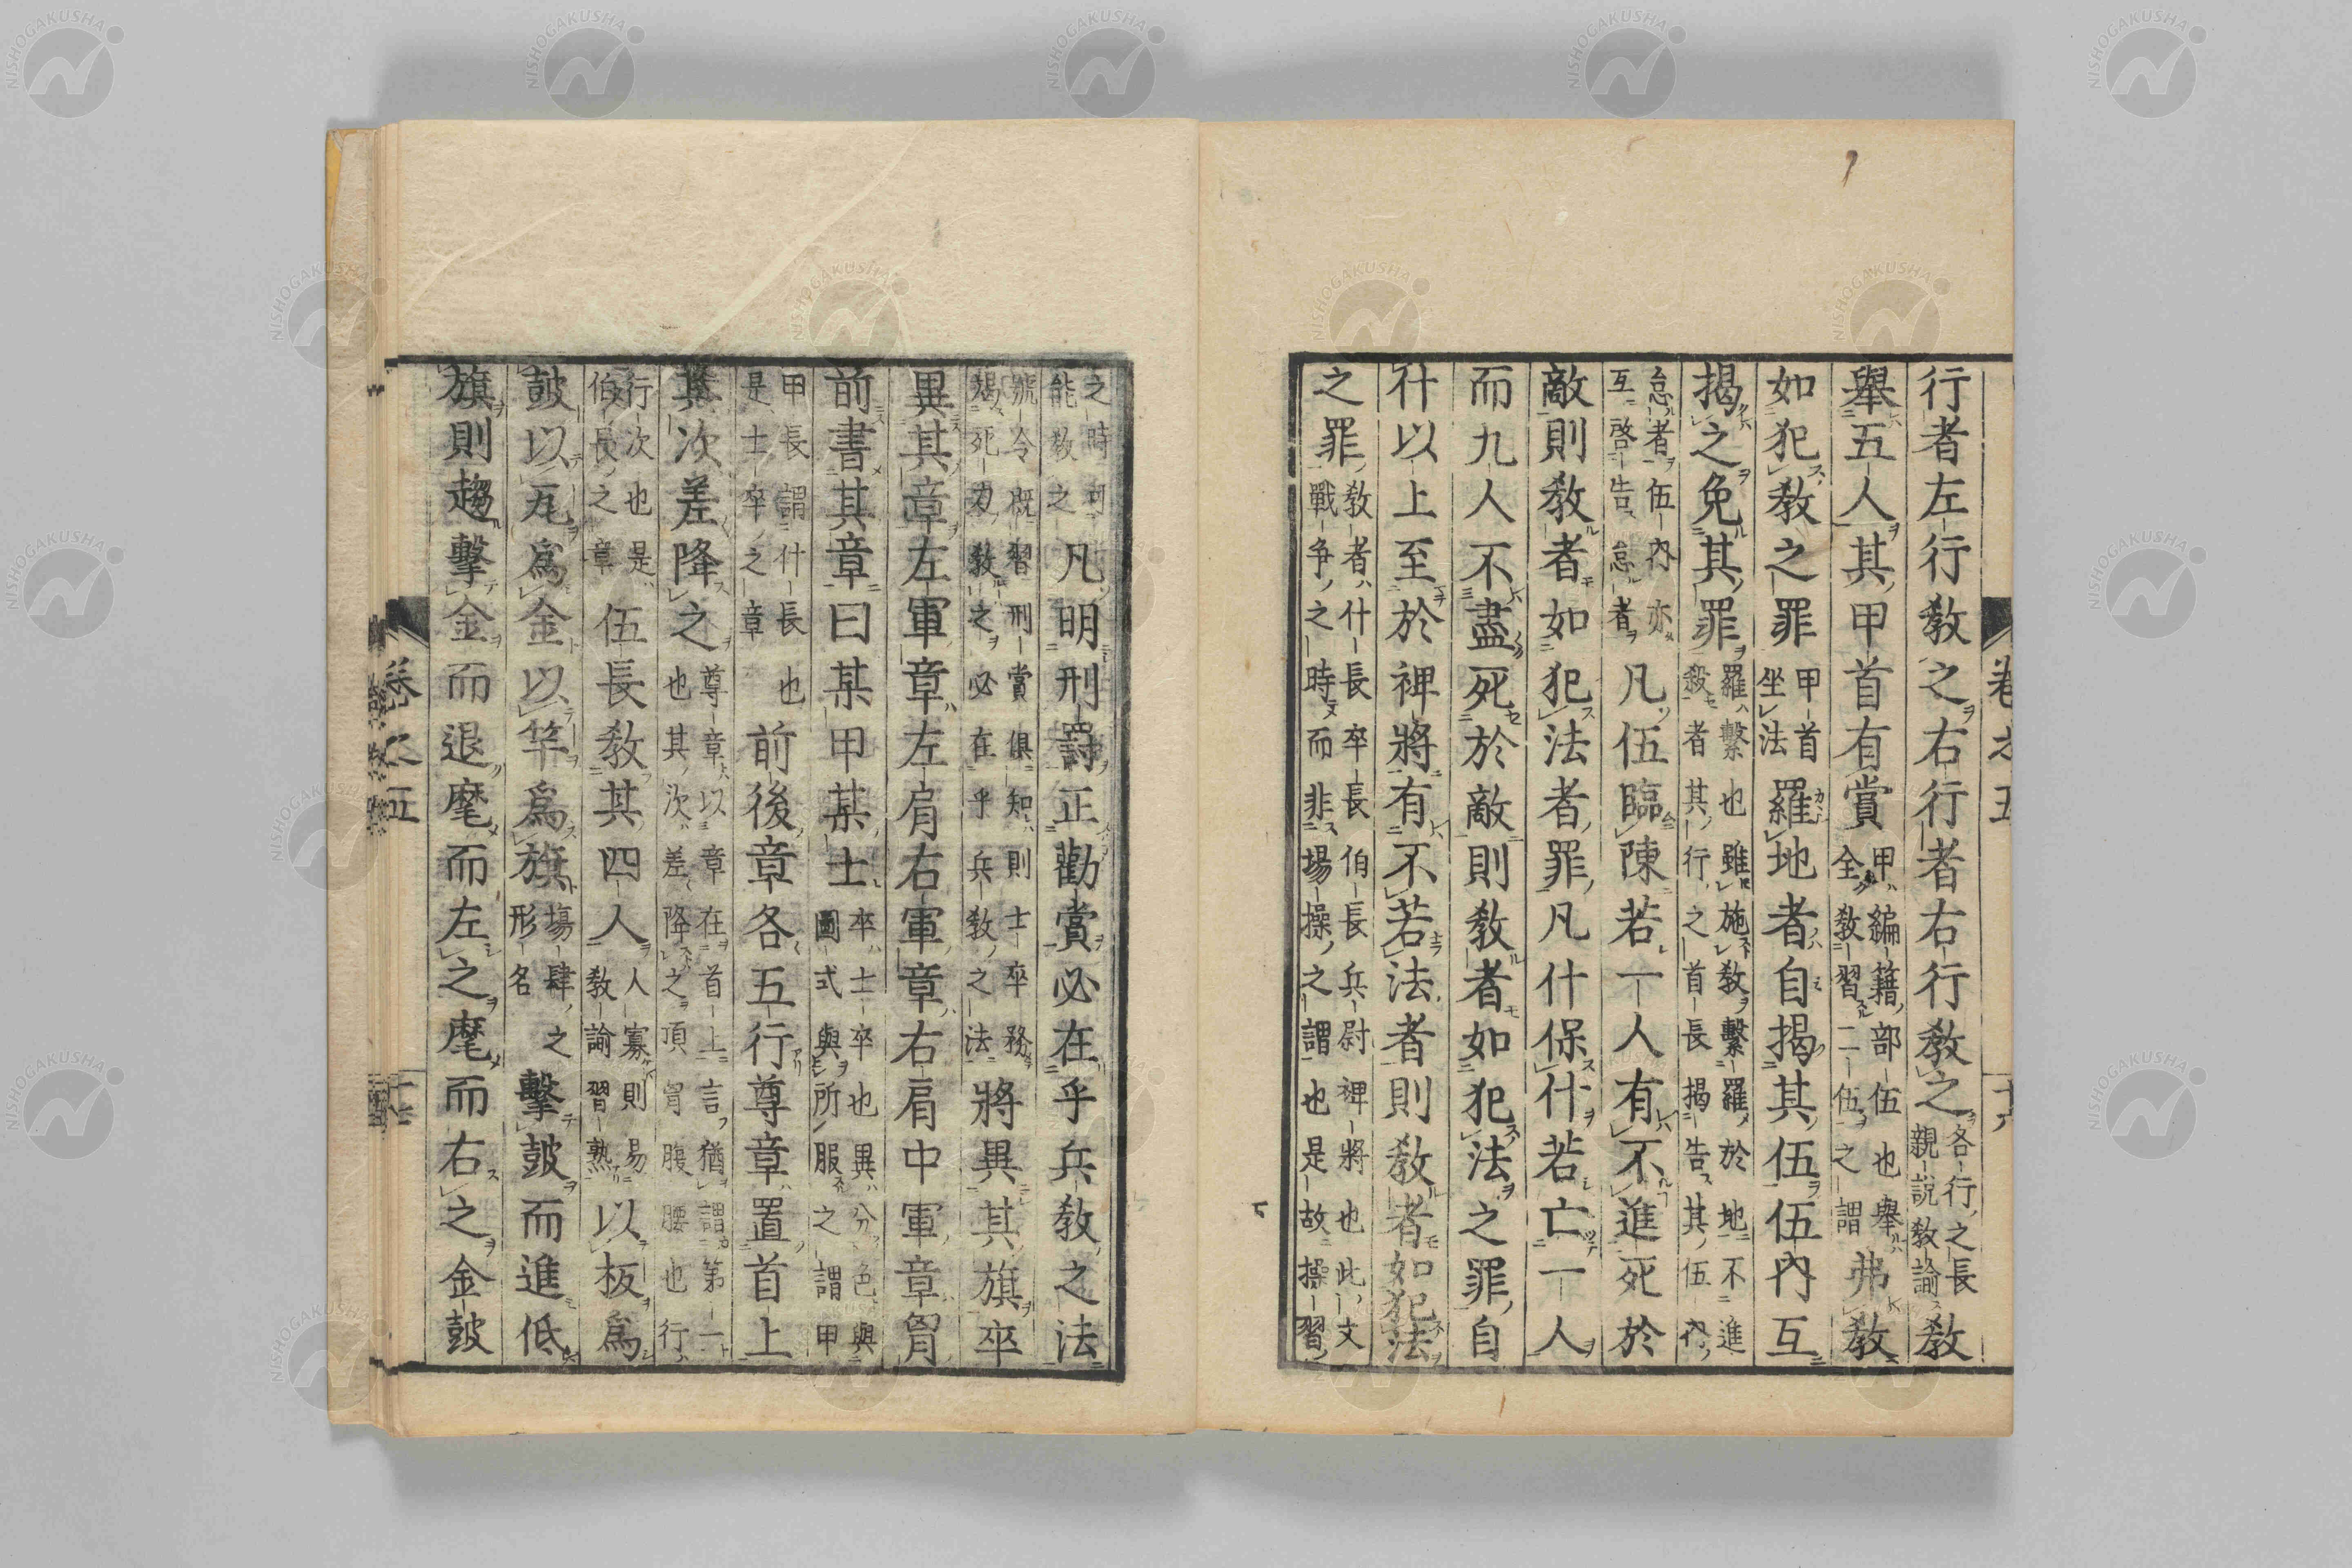 行者左行教之右行者右行教之各行之長親說教諭教
舉五人其甲首有賞甲編籍部伍也舉全教習二伍之謂弗教
如犯教之罪甲首坐法羅地者自揭其伍伍內互
揭之免其罪羅繫也雖施教繫羅於地不進殺者其行之首長揭告其伍內
怠者伍內亦互啓告怠者凡伍臨陳若一人有不進死於
敵則教者如犯法者罪凡什保什若亡一人
而九人不盡死於敵則教者如犯法之罪自
什以上至於裨將有不若法者則教者如犯法
之罪教者什長卒長伯長兵尉裨將也此文戰争之時而非場操之謂也是故操習
卷之五
之時能教之凡明刑罰正勸賞必在乎兵教之法
號令既習刑賞俱知則士卒務揭死力教之必在乎兵教之法將異其旗卒
異其章左軍章左肩右軍章右肩中軍章胷
前書其章曰某甲某士卒士卒也異分色與圖式與所服之謂甲
甲長謂什長也是士卒之章前後章各五行尊章置首上
其次差降之尊章以章在首上言猶謂第一也其次差降之頂胷腹腰也行
行次也是伯長之章伍長教其四人人寡則易教諭習熟以板爲
鼓以瓦爲金以竿爲旗場肆之形名擊鼓而進低
旗則趨擊金而退麾而左之麾而右之金鼓
卷之五
NISHOGAKUSHA